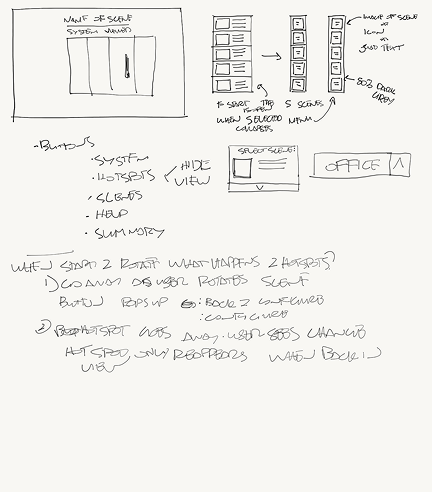 NAME OF SCENE
SYSTEM NAMED
IMAGE OF SCENE
OR
ICON
OR
JUST TEXT
80% DARK
GREY
@ START THE
IS OPEN
WHEN SELECTED
COLLAPSES
5 SCENES
MENU
• BUTTONS
• SYSTEM
• HOTSPOTS
HIDE
VIEW
• SCENES
• HELP
• SUMMARY
SELECT SCENE:
OFFICE
WHEN START 2 ROTATE WHAT HAPPENS 2 HOTSPOTS?
1) GO AWAY AS USER ROTATES SCENE
BUTTON POPS UP : BACK 2 CONFIGURE
: CONFIGURE
2) HOTSPOT GOES AWAY. USER SEES CHANGE
HOTSPOT ONLY REAPPEARS WHEN BACK IN
VIEW